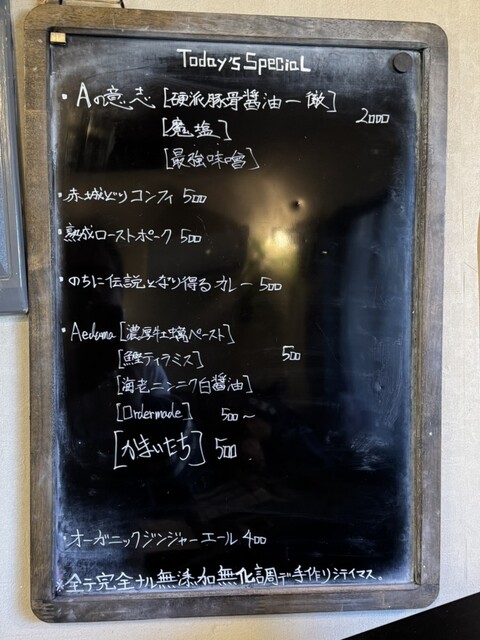 Today's Special
・Aの意志 [硬派豚骨醤油一徹]
2000
[魔塩]
[最強味噌]
・赤城どりコンフィ 500
・熟成ローストポーク 500
・のちに伝説となり得るオレー 500
・Aedama [濃厚牡蠣ペースト]
[鰹ティラミス] 500
[海老ニンニク白醤油]
[Ordermade] 500〜
[かまいたち] 500
・オーガニックジンジャーエール 400
※全テ完全ナル無添加無化調デ手作リシテイマス。